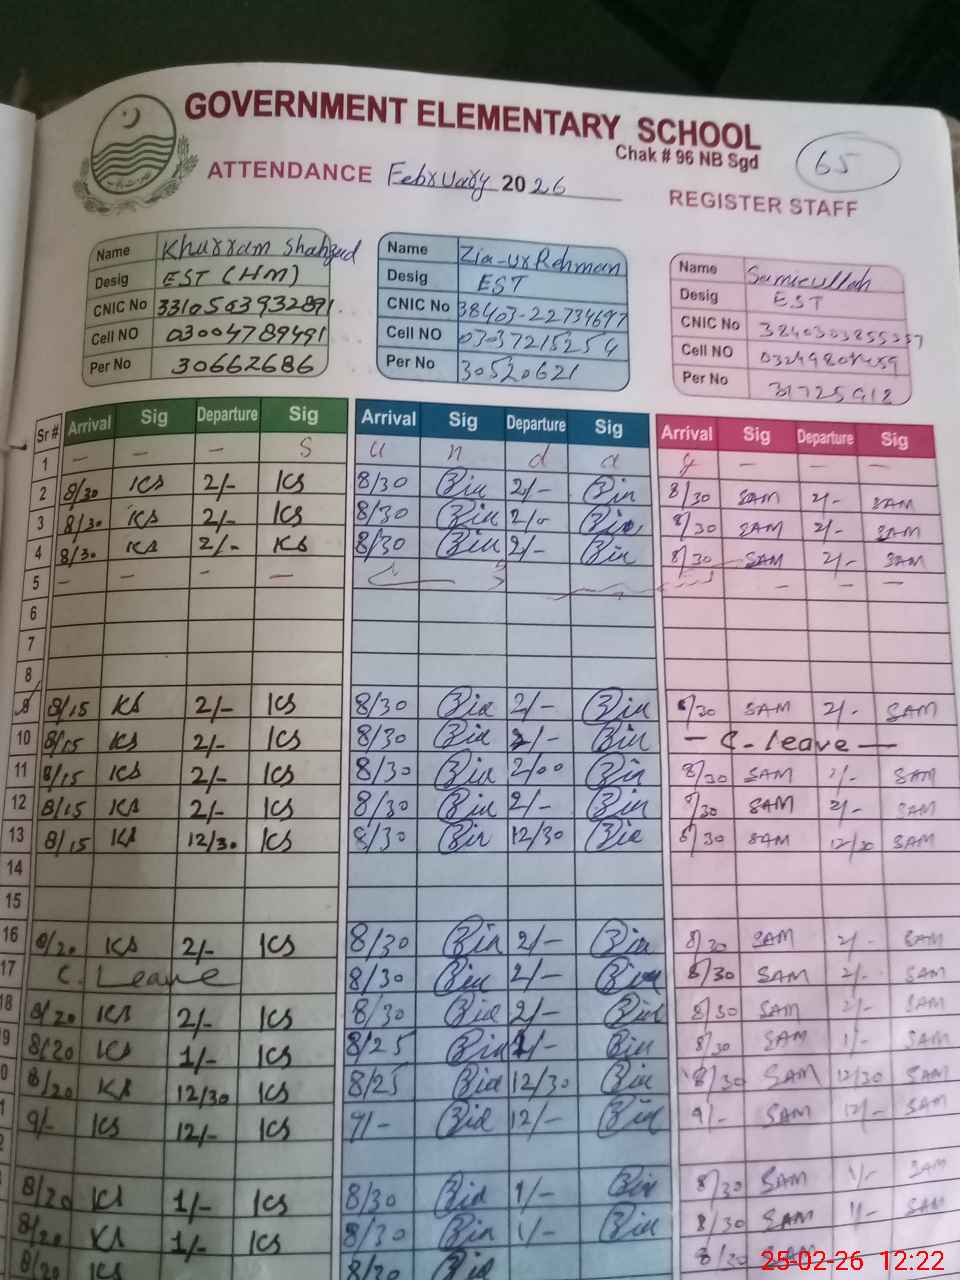 GOVERNMENT ELEMENTARY SCHOOL
Chak # 96 NB Sgd
65
ATTENDANCE February 2026
REGISTER STAFF
Name Khurram Shahzad
Desig EST (HM)
CNIC No 3310503932891
Cell NO 03004789491
Per No 30662686
Name Zia-ur Rehman
Desig EST
CNIC No 38403-22734697
Cell NO 03037215254
Per No 30520621
Name Samieullah
Desig EST
CNIC No
Cell NO
Per No 31725912
Sr# Arrival Sig Departure Sig Arrival Sig Departure Sig Arrival Sig Departure Sig
1 — — — S u n d a y — — —
2 8/30 KS 2/- KS 8/30 Zia 2/- Zia 8/30 SAM 2/- SAM
3 8/30 KS 2/- KS 8/30 Zia 2/- Zia 8/30 SAM 2/- SAM
4 8/30 KS 2/- KS 8/30 Zia 2/- Zia 8/30 SAM 2/- SAM
5 — — — — — — —
6
7
8
9 8/15 KS 2/- KS 8/30 Zia 2/- Zia 8/30 SAM 2/- SAM
10 8/15 KS 2/- KS 8/30 Zia 2/- Zia — C. leave —
11 8/15 KS 2/- KS 8/30 Zia 2/00 Zia 8/30 SAM 2/- SAM
12 8/15 KS 2/- KS 8/30 Zia 2/- Zia 8/30 SAM 2/- SAM
13 8/15 KS 12/30 KS 8/30 Zia 12/30 Zia 8/30 SAM 12/30 SAM
14
15
16 8/20 KS 2/- KS 8/30 Zia 2/- Zia 8/30 SAM 2/- SAM
17 C. Leave 8/30 Zia 2/- Zia 8/30 SAM 2/- SAM
18 8/20 KS 2/- KS 8/30 Zia 2/- Zia 8/30 SAM 2/- SAM
9 8/20 KS 1/- KS 8/25 Zia 1/- Zia 8/30 SAM 1/- SAM
0 8/20 KS 12/30 KS 8/25 Zia 12/30 Zia 8/30 SAM 12/30 SAM
1 9/- KS 12/- KS 9/- Zia 12/- Zia 9/- SAM 12/- SAM
2
8/20 KS 1/- KS 8/30 Zia 1/- Zia 8/30 SAM 1/- SAM
8/20 KS 1/- KS 8/30 Zia 1/- Zia 8/30 SAM 1/- SAM
8/20 KS 8/30 Zia 8/30 SAM
25-02-26 12:22